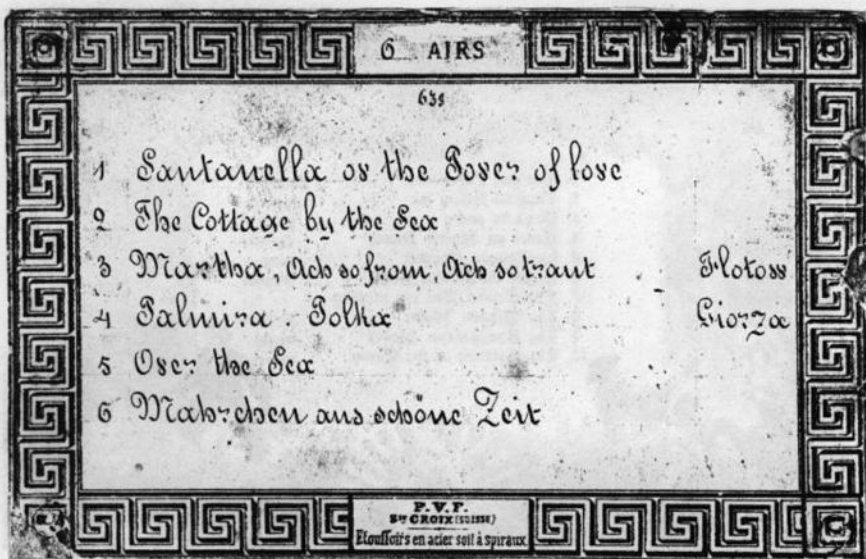 6 AIRS
635
1 Santanella or the Power of love
2 The Cottage by the Sea
3 Martha, Ach so from, Ach so traut Flotow
4 Palmira. Polka Giorza
5 Over the Sea
6 Mahrchen aus schöne Zeit
P.V.F.
STE CROIX (SUISSE)
Etouffoirs en acier soit à spiraux